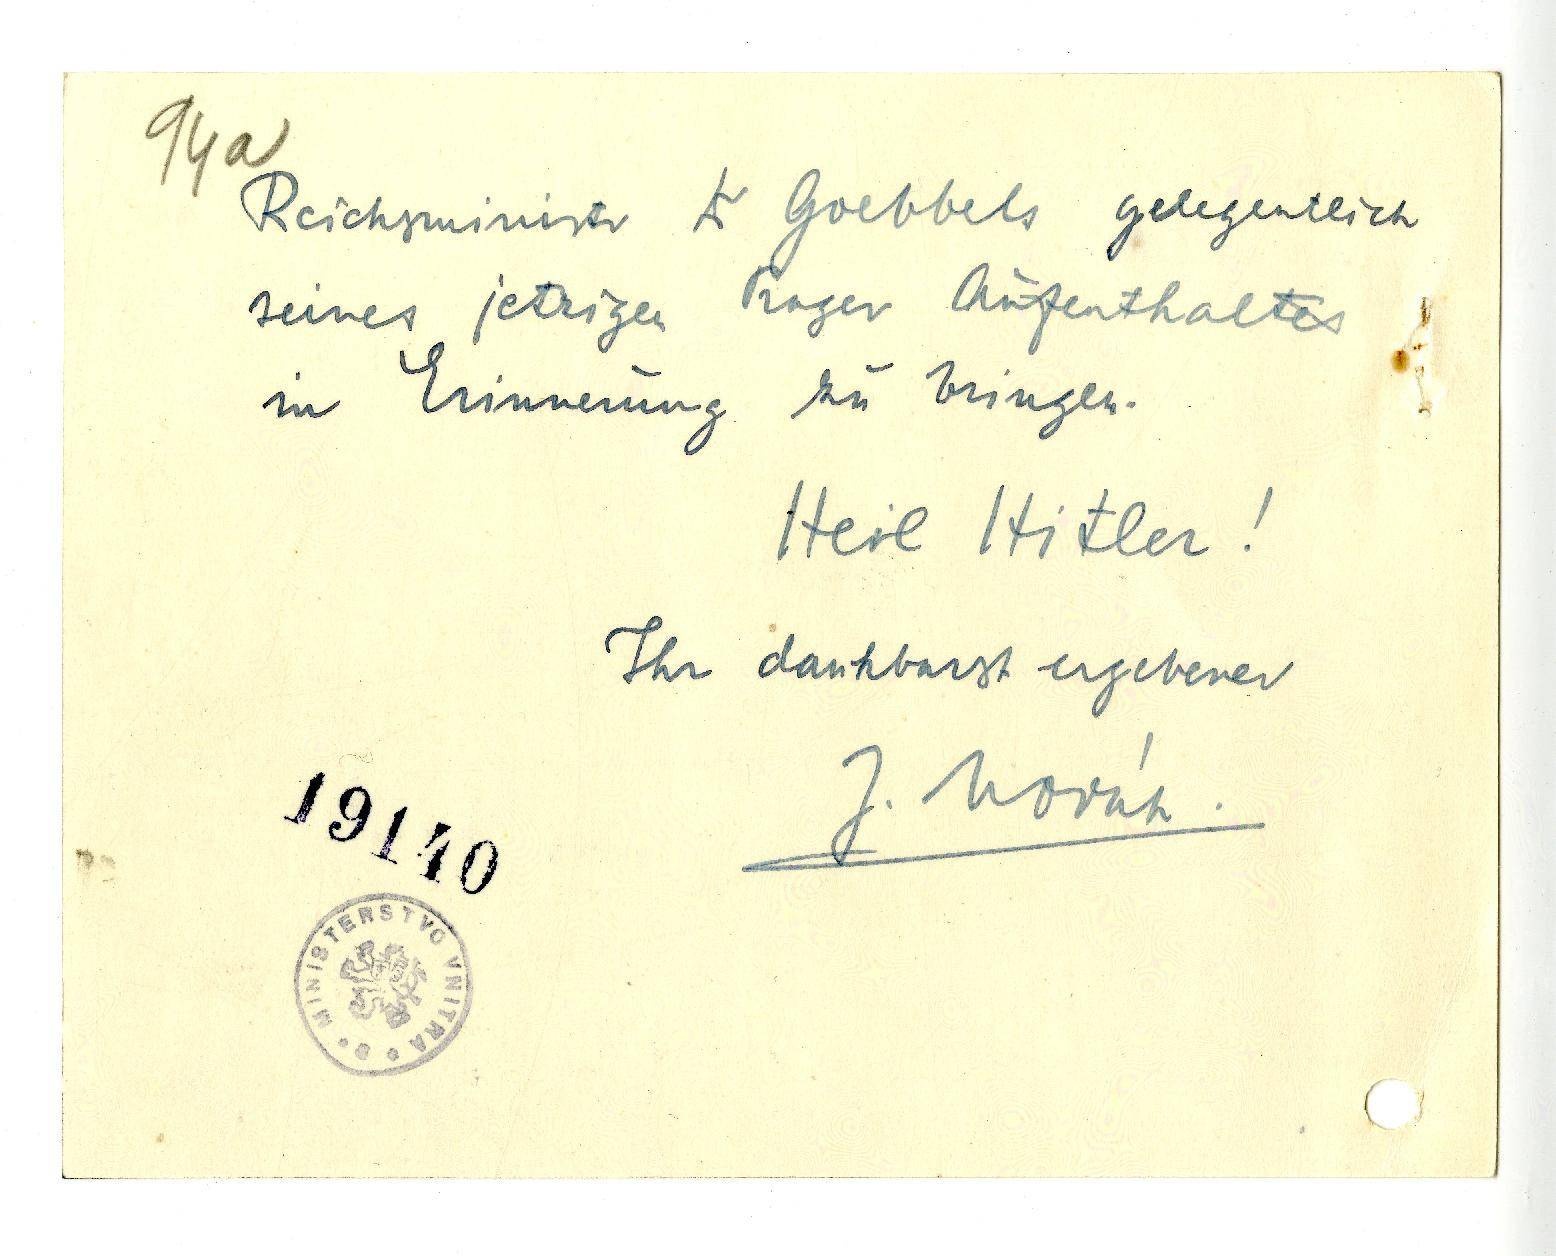 94a
Reichsminister Dr Goebbels gelegentlich
seines jetzigen Prager Aufenthaltes
in Erinnerung zu bringen.
Heil Hitler!
Ihr dankbarst ergebener
J. Novák.
19140
MINISTERSTVO VNITRA * 8 *